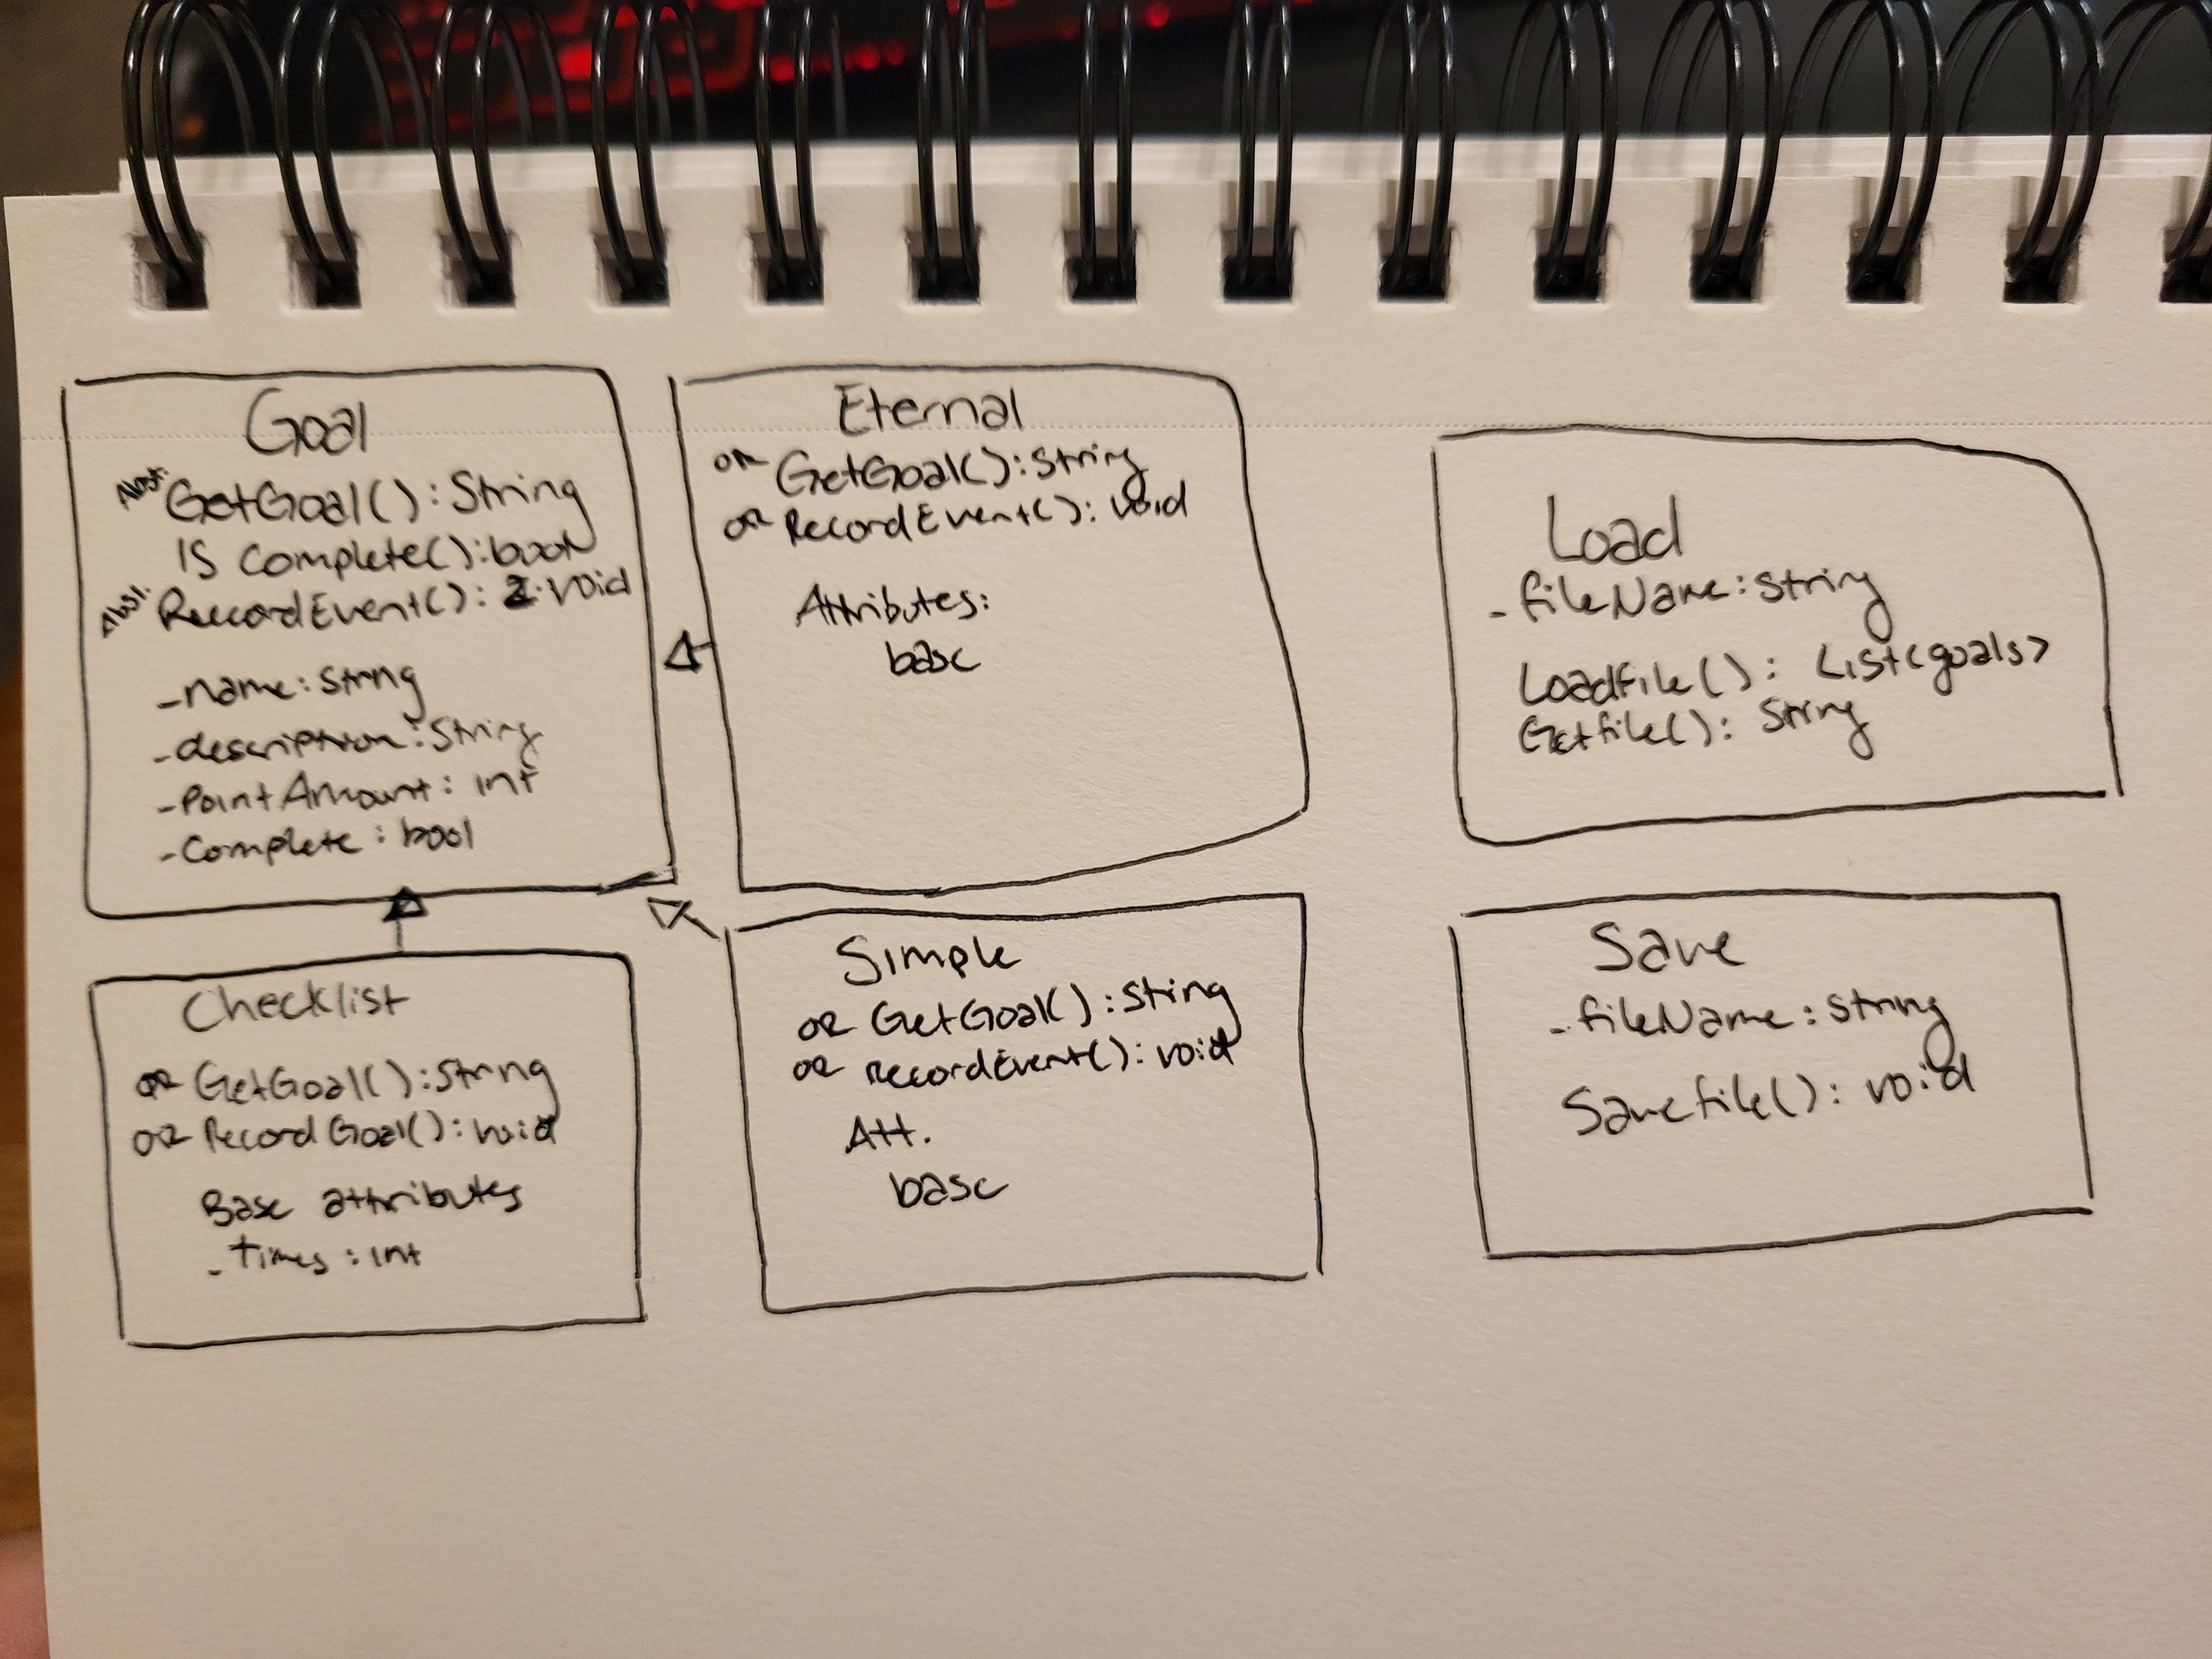 Goal
Abst. GetGoal() : String
IS Complete() : bool
Abst. ReccordEvent() : void
- name : String
- description : String
- Point Amount : int
- Complete : bool
Eternal
OR GetGoal() : String
OR RecordEvent() : void
Attributes:
base
Load
- fileName : String
LoadFile() : List<goals>
Getfile() : String
Checklist
OR GetGoal() : String
OR Record Goal() : void
Base attributes
- Times : int
Simple
OR GetGoal() : String
OR RecordEvent() : void
Att.
base
Save
- fileName : String
Savefile() : void